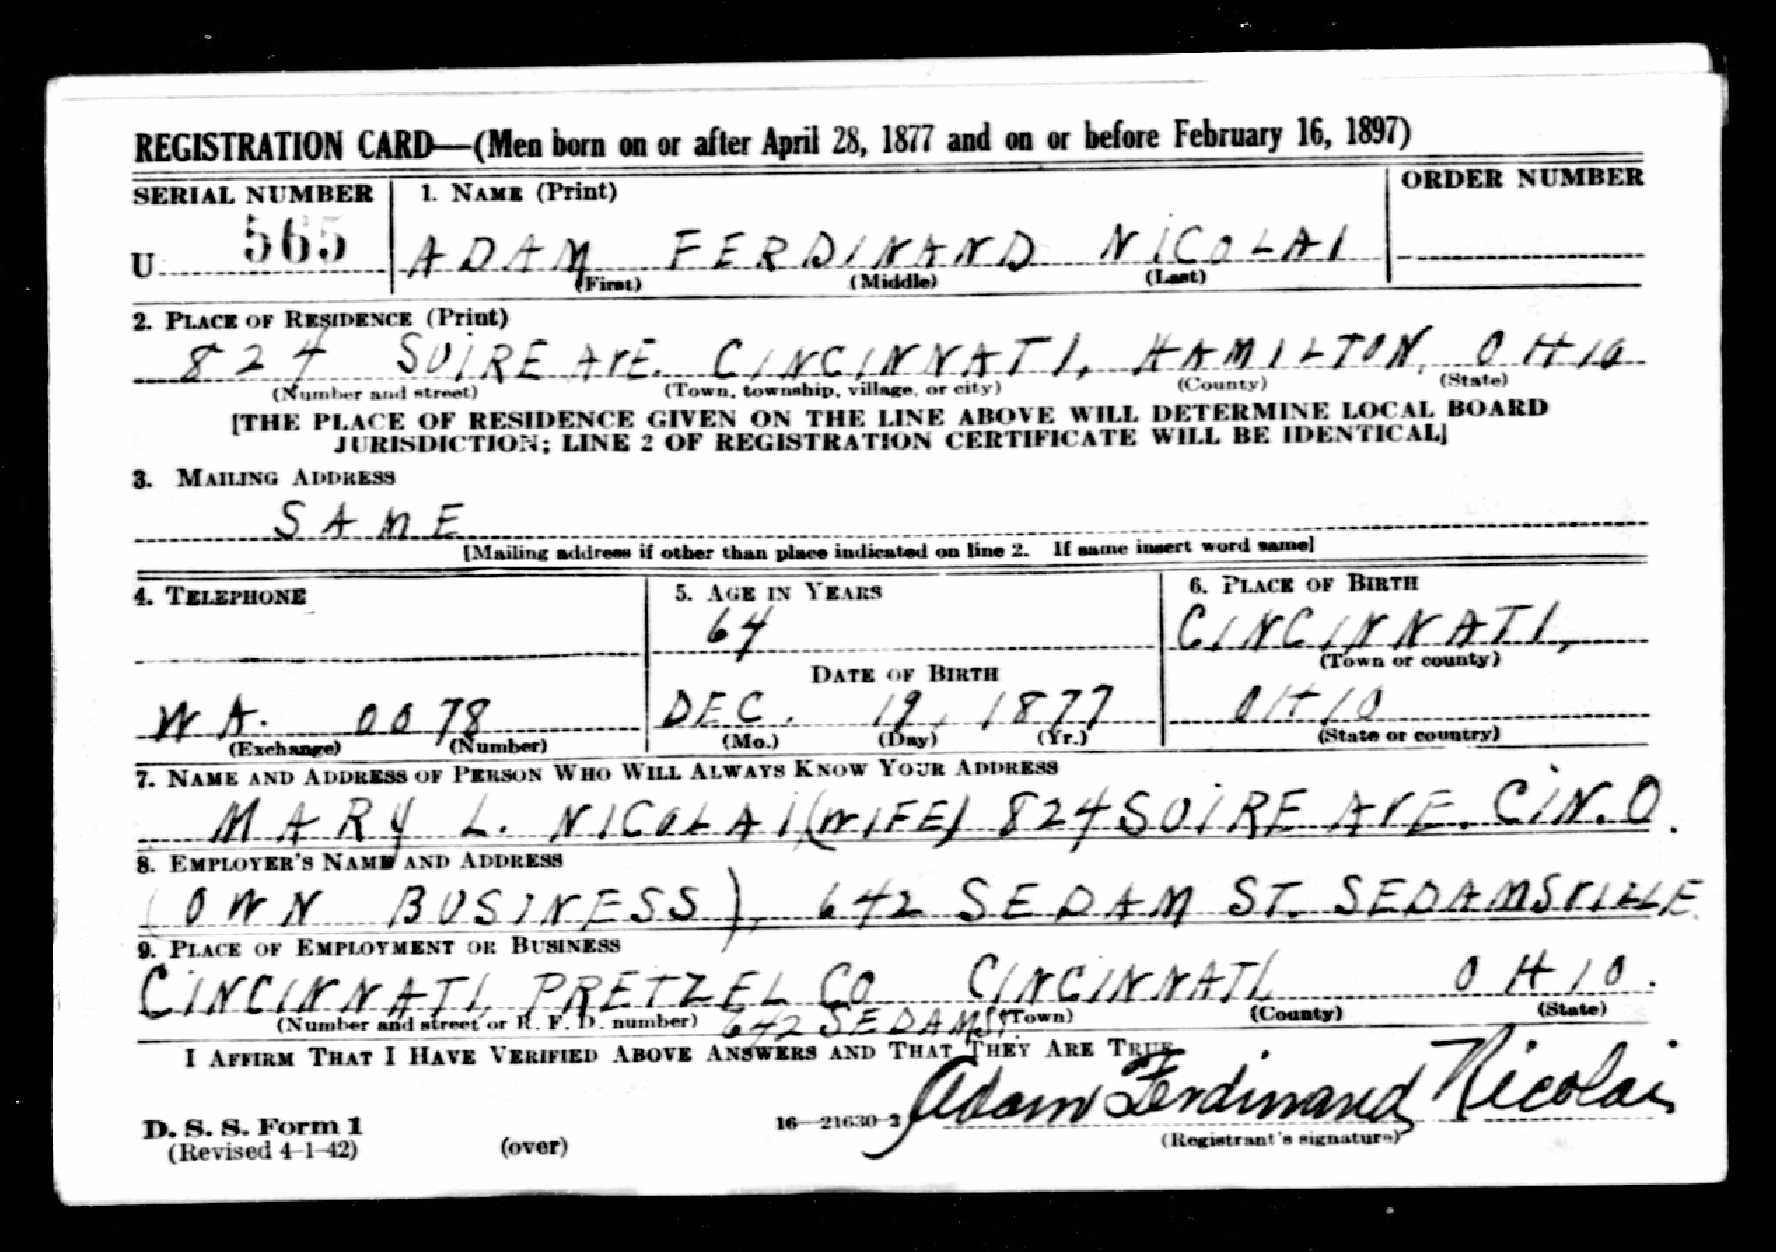 REGISTRATION CARD—(Men born on or after April 28, 1877 and on or before February 16, 1897)
SERIAL NUMBER
1. NAME (Print)
ORDER NUMBER
U 565
ADAM FERDINAND NICOLAI
(First) (Middle) (Last)
2. PLACE OF RESIDENCE (Print)
824 SUIRE AVE. CINCINNATI, HAMILTON, OHIO
(Number and street) (Town, township, village, or city) (County) (State)
[THE PLACE OF RESIDENCE GIVEN ON THE LINE ABOVE WILL DETERMINE LOCAL BOARD
JURISDICTION; LINE 2 OF REGISTRATION CERTIFICATE WILL BE IDENTICAL]
3. MAILING ADDRESS
SAME
[Mailing address if other than place indicated on line 2. If same insert word same]
4. TELEPHONE
5. AGE IN YEARS
6. PLACE OF BIRTH
64
CINCINNATI,
(Town or county)
DATE OF BIRTH
WA. 0078
DEC. 19, 1877
OHIO
(Exchange) (Number)
(Mo.) (Day) (Yr.)
(State or country)
7. NAME AND ADDRESS OF PERSON WHO WILL ALWAYS KNOW YOUR ADDRESS
MARY L. NICOLAI (WIFE) 824 SUIRE AVE. CIN. O.
8. EMPLOYER'S NAME AND ADDRESS
(OWN BUSINESS), 642 SEDAM ST. SEDAMSVILLE
9. PLACE OF EMPLOYMENT OR BUSINESS
CINCINNATI, PRETZEL CO CINCINNATI OHIO.
(Number and street or R. F. D. number) 642 SEDAM ST. (Town) (County) (State)
I AFFIRM THAT I HAVE VERIFIED ABOVE ANSWERS AND THAT THEY ARE TRUE.
Adam Ferdinand Nicolai
D. S. S. Form 1
(Revised 4-1-42)
(over)
16—21630-2
(Registrant's signature)